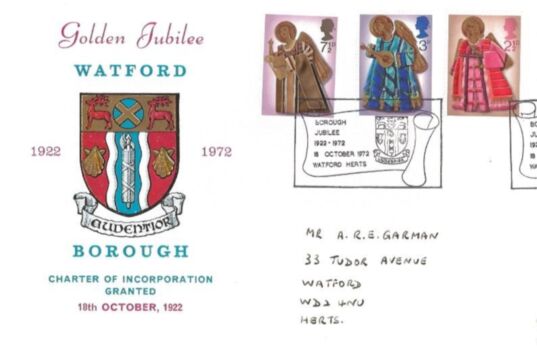 Golden Jubilee
WATFORD
1922
1972
AUDENTIOR
BOROUGH
CHARTER OF INCORPORATION
GRANTED
18th OCTOBER, 1922
7½P
3P
2½P
BOROUGH
JUBILEE
1922-1972
18 OCTOBER 1972
WATFORD HERTS
AUDENTIOR
BO
JU
19
18
WA
MR A.R.E. GARMAN
33 TUDOR AVENUE
WATFORD
WD2 4NU
HERTS.